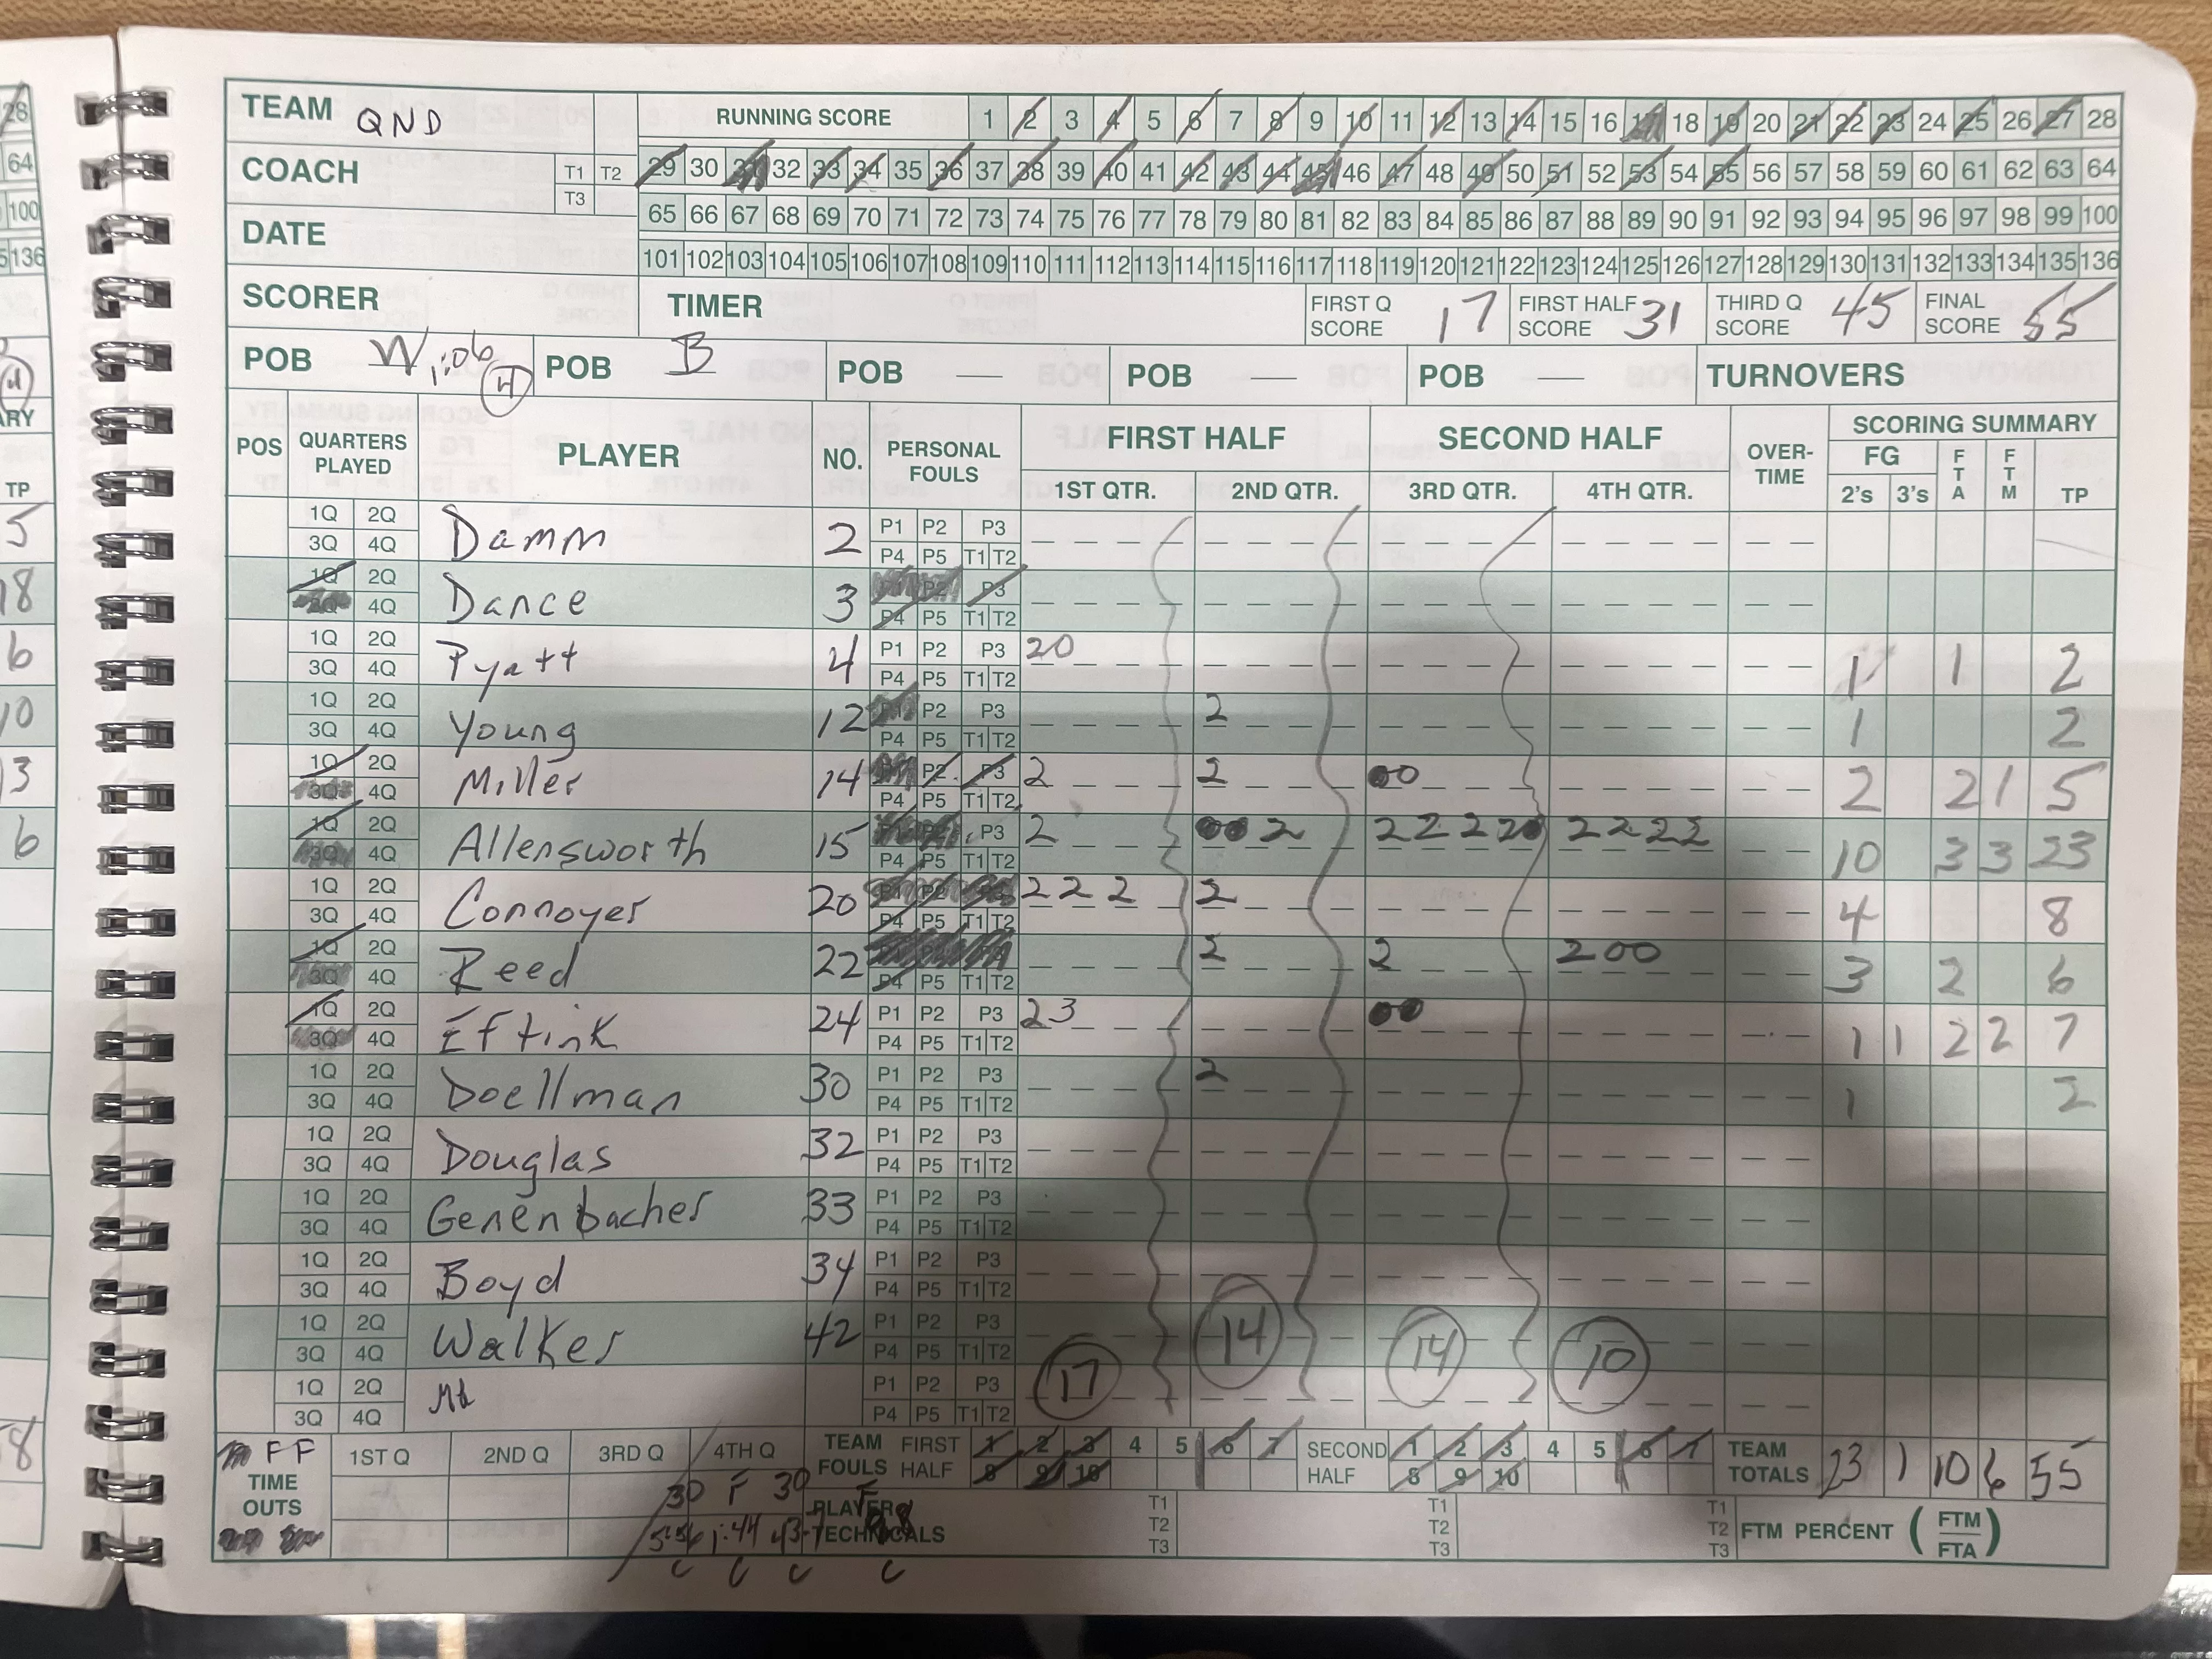 TEAM QND
RUNNING SCORE 1 2 3 4 5 6 7 8 9 10 11 12 13 14 15 16 17 18 19 20 21 22 23 24 25 26 27 28
COACH T1 T2 T3
29 30 31 32 33 34 35 36 37 38 39 40 41 42 43 44 45 46 47 48 49 50 51 52 53 54 55 56 57 58 59 60 61 62 63 64
65 66 67 68 69 70 71 72 73 74 75 76 77 78 79 80 81 82 83 84 85 86 87 88 89 90 91 92 93 94 95 96 97 98 99 100
DATE
101 102 103 104 105 106 107 108 109 110 111 112 113 114 115 116 117 118 119 120 121 122 123 124 125 126 127 128 129 130 131 132 133 134 135 136
SCORER TIMER FIRST Q SCORE 17 FIRST HALF SCORE 31 THIRD Q SCORE 45 FINAL SCORE 55
POB W 1:06 4 POB B POB — POB — POB — TURNOVERS
POS QUARTERS PLAYED PLAYER NO. PERSONAL FOULS FIRST HALF SECOND HALF OVER-TIME SCORING SUMMARY
1ST QTR. 2ND QTR. 3RD QTR. 4TH QTR. FG 2's 3's FTA FTM TP
1Q 2Q Damm 2 P1 P2 P3
3Q 4Q P4 P5 T1 T2
1Q 2Q Dance 3 P1 P2 P3
3Q 4Q P4 P5 T1 T2
1Q 2Q Pyatt 4 P1 P2 P3 20 1 1 2
3Q 4Q P4 P5 T1 T2
1Q 2Q Young 12 P1 P2 P3 2 1 2
3Q 4Q P4 P5 T1 T2
1Q 2Q Miller 14 P1 P2 P3 2 2 00 2 2 1 5
3Q 4Q P4 P5 T1 T2
1Q 2Q Allensworth 15 P1 P2 P3 2 00 2 2 2 2 2 0 2 2 2 2 10 3 3 23
3Q 4Q P4 P5 T1 T2
1Q 2Q Connoyer 20 P1 P2 P3 2 2 2 2 4 8
3Q 4Q P4 P5 T1 T2
1Q 2Q Reed 22 P1 P2 P3 2 2 200 3 2 6
3Q 4Q P4 P5 T1 T2
1Q 2Q Eftink 24 P1 P2 P3 23 00 1 1 2 2 7
3Q 4Q P4 P5 T1 T2
1Q 2Q Doellman 30 P1 P2 P3 2 1 2
3Q 4Q P4 P5 T1 T2
1Q 2Q Douglas 32 P1 P2 P3
3Q 4Q P4 P5 T1 T2
1Q 2Q Genenbacher 33 P1 P2 P3
3Q 4Q P4 P5 T1 T2
1Q 2Q Boyd 34 P1 P2 P3
3Q 4Q P4 P5 T1 T2
1Q 2Q Walker 42 P1 P2 P3
3Q 4Q P4 P5 T1 T2
1Q 2Q P1 P2 P3 17 14 14 10
3Q 4Q P4 P5 T1 T2
F F TIME OUTS 1ST Q 2ND Q 3RD Q 4TH Q TEAM FOULS FIRST HALF 1 2 3 4 5 6 7 SECOND HALF 1 2 3 4 5 6 7 TEAM TOTALS 23 1 10 6 55
8 9 10 8 9 10
30 F 30 F
PLAYER TECHNICALS T1 T2 T3 T1 T2 T3 T1 T2 T3 FTM PERCENT (FTM FTA)
5:56 1:44
C C C C
28
64
100
136
ARY
TP
5
18
6
10
13
6